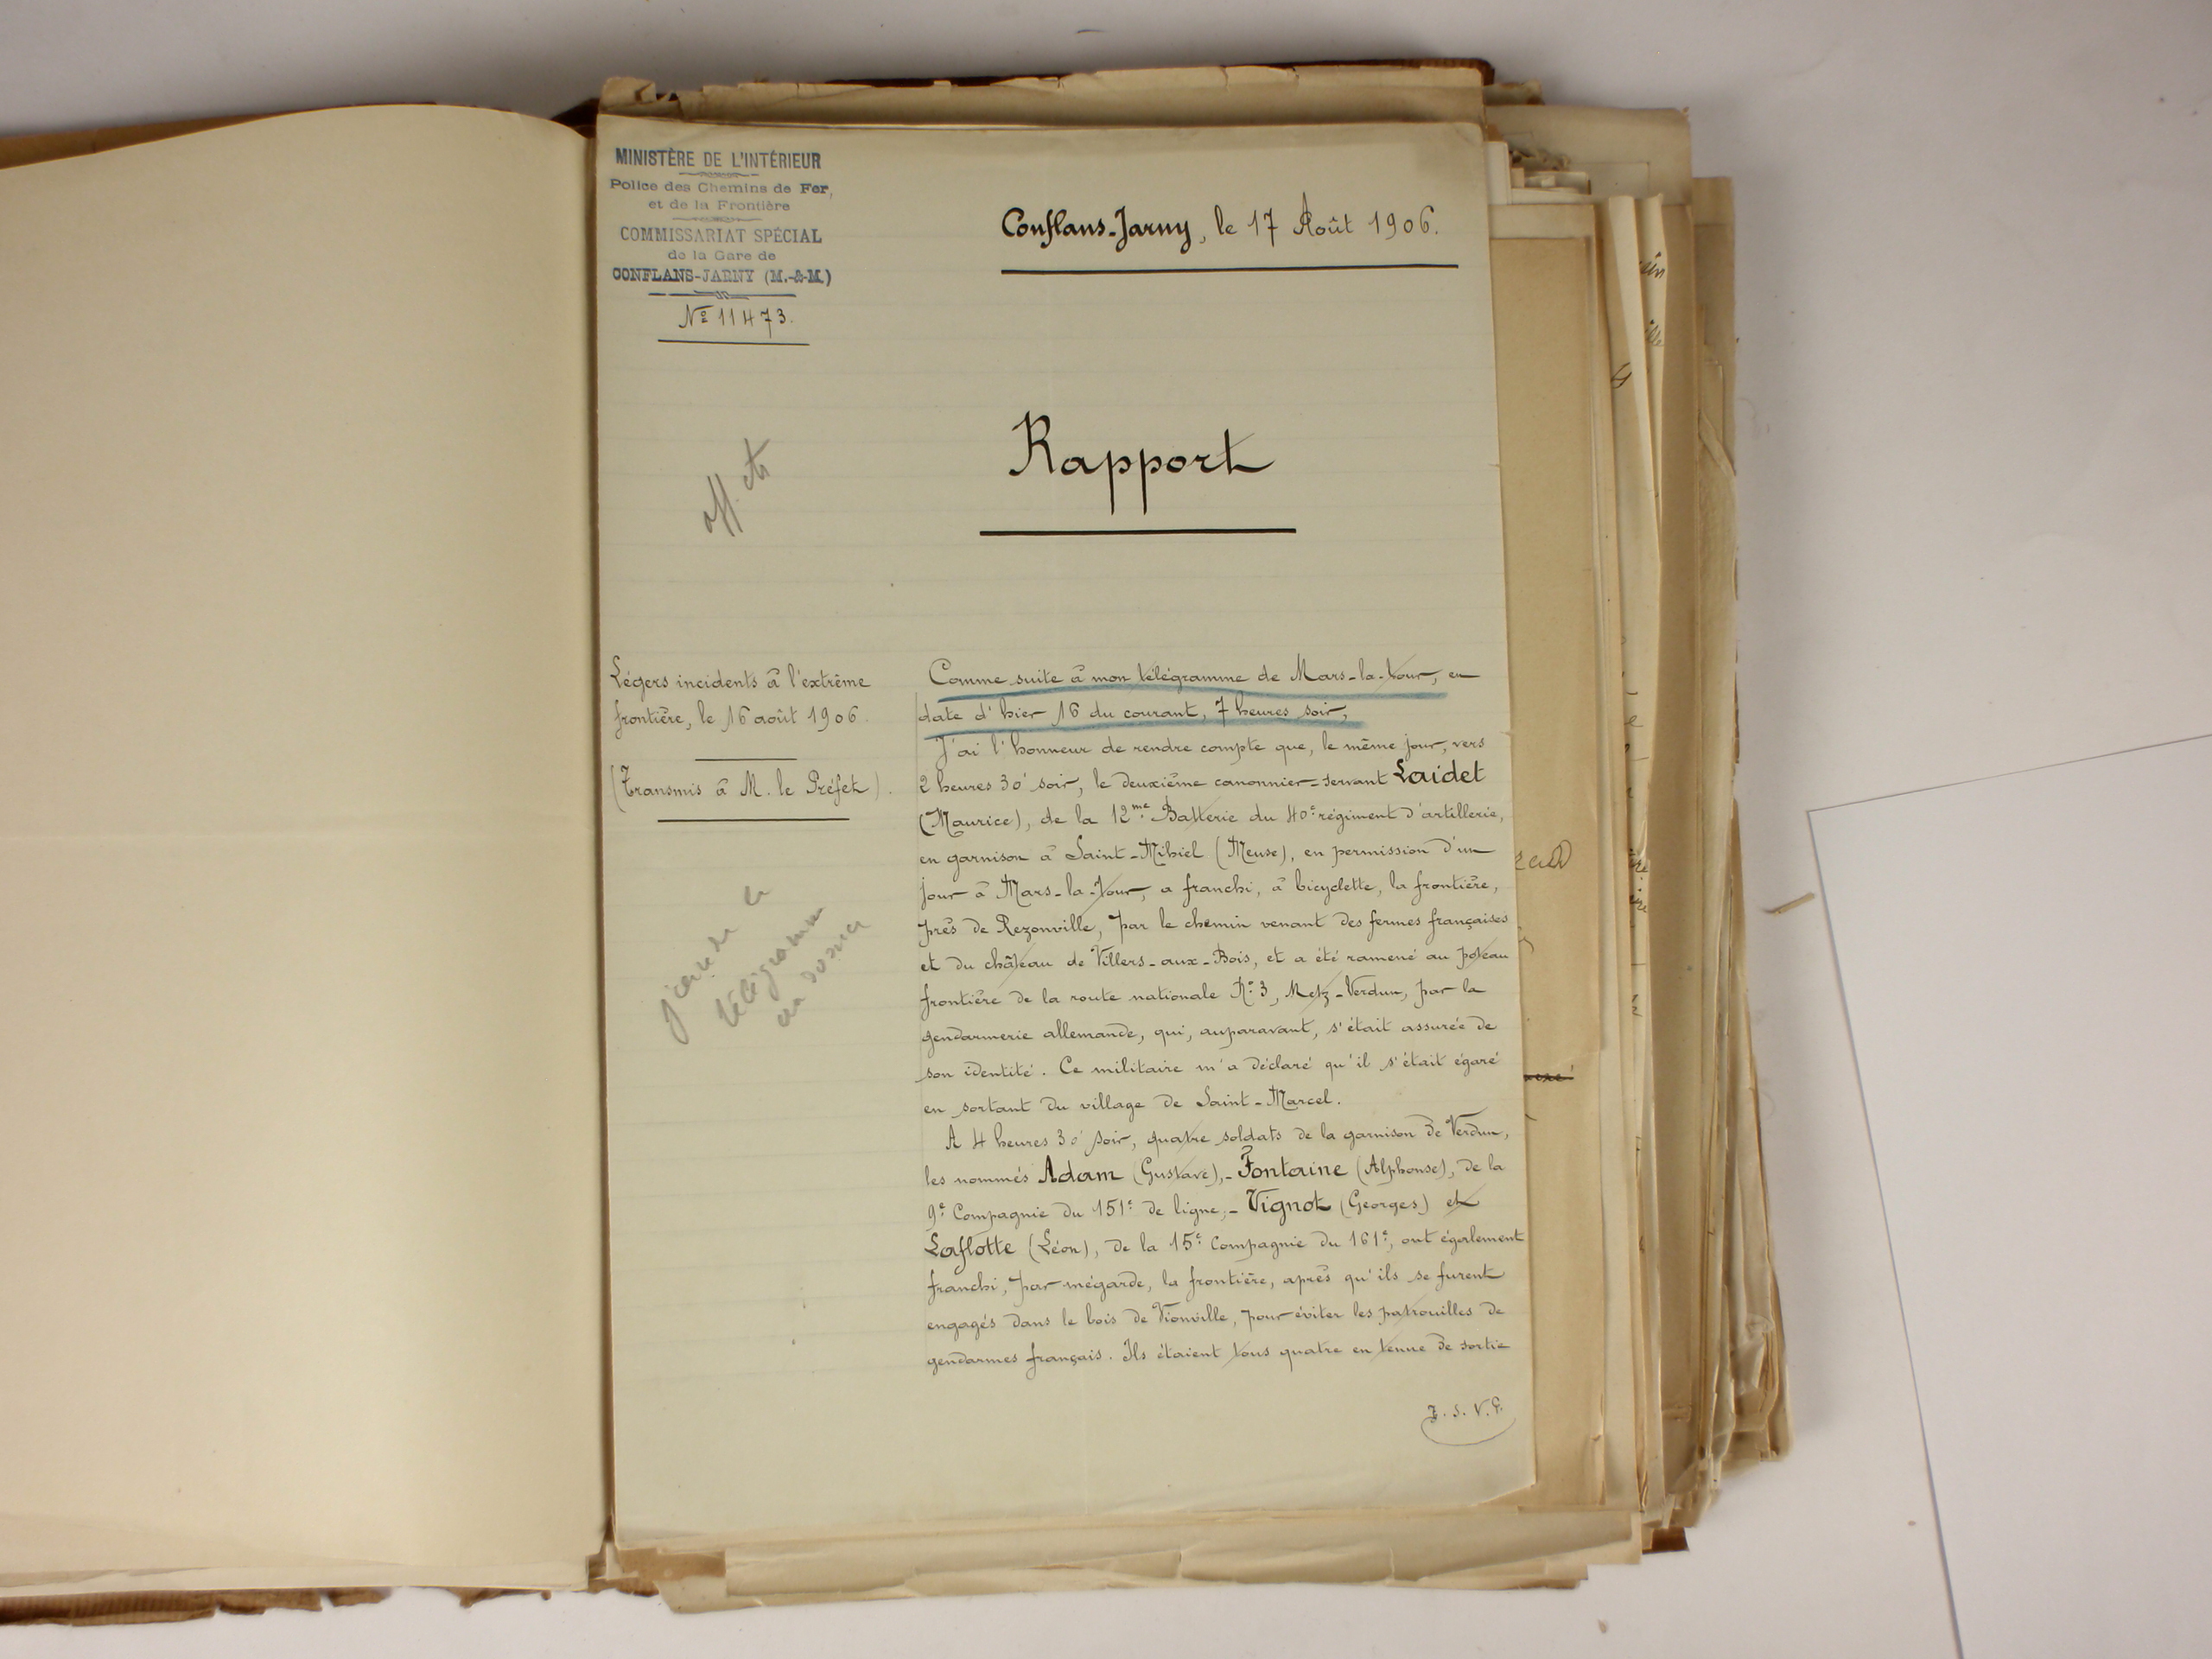 MINISTÈRE DE L'INTÉRIEUR
Police des Chemins de Fer,
et de la Frontière
COMMISSARIAT SPÉCIAL
de la Gare de
CONFLANS-JARNY (M.-&-M.)
Nº 11473.
Conflans-Jarny, le 17 Août 1906.
Rapport
Légers incidents à l'extrême
frontière, le 16 août 1906.
(Transmis à M. le Préfet).
télégramme
Comme suite à mon télégramme de Mars-la-Tour, en
date d'hier 16 du courant, 7 heures soir,
J'ai l'honneur de rendre compte que, le même jour, vers
2 heures 30' soir, le deuxième canonnier-servant Laidet
(Maurice), de la 12me Batterie du 40e régiment d'artillerie,
en garnison à Saint-Mihiel (Meuse), en permission d'un
jour à Mars-la-Tour, a franchi, à bicyclette, la frontière,
près de Rezonville, par le chemin venant des fermes françaises
et du château de Villers-aux-Bois, et a été ramené au poteau
frontière de la route nationale Nº 3, Metz-Verdun, par la
gendarmerie allemande, qui, auparavant, s'était assurée de
son identité. Ce militaire m'a déclaré qu'il s'était égaré
en sortant du village de Saint-Marcel.
A 4 heures 30' soir, quatre soldats de la garnison de Verdun,
les nommés Adam (Gustave),- Fontaine (Alphonse), de la
9e Compagnie du 151e de ligne;- Vignot (Georges) et
Laflotte (Léon), de la 15e Compagnie du 161e, ont également
franchi, par mégarde, la frontière, après qu'ils se furent
engagés dans le bois de Vionville, pour éviter les patrouilles de
gendarmes français. Ils étaient tous quatre en tenue de sortie
T. S. V. P.